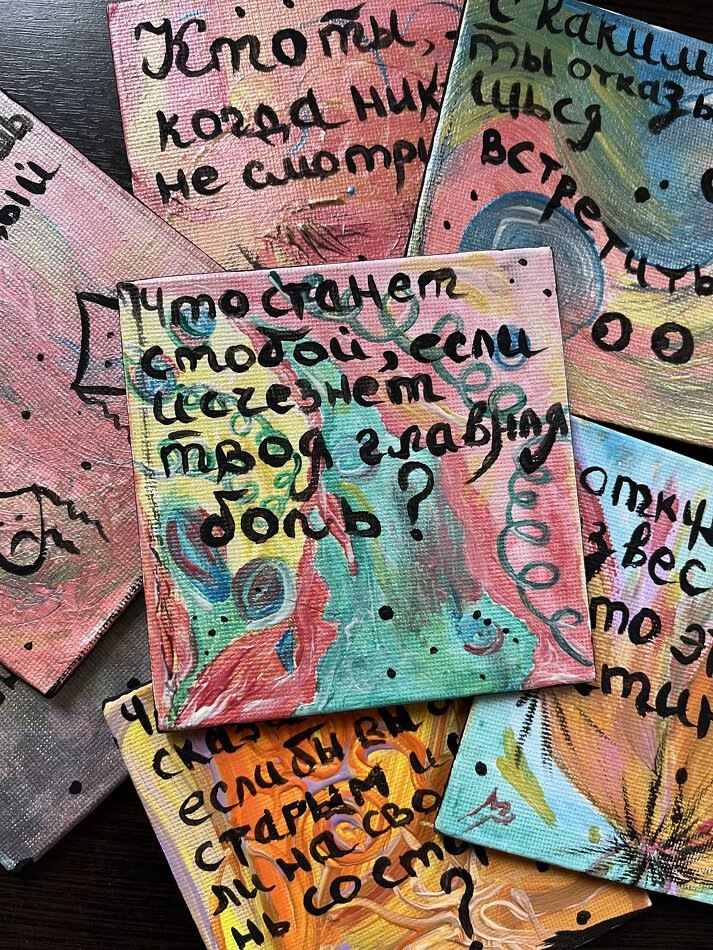 Кто ты,
когда ник
не смотри
С каким
ты отказы
шься
встретить
ый
Что станет
с тобой, если
исчезнет
твоя главная
боль?
откуд
з вес
то эт
стин
Ч
сказ
если бы вы
старым и
ли на сво
нь со сто
?